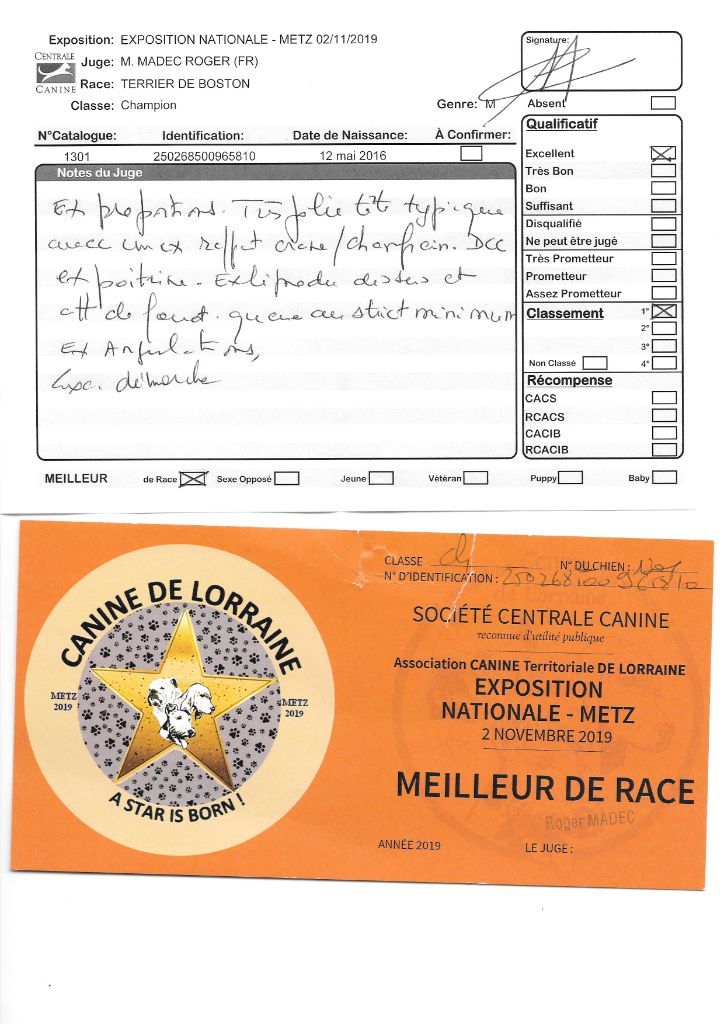 Exposition: EXPOSITION NATIONALE - METZ 02/11/2019
CENTRALE CANINE
Juge: M. MADEC ROGER (FR)
Race: TERRIER DE BOSTON
Classe: Champion
Genre: M
Signature:
Absent
N°Catalogue: Identification: Date de Naissance: À Confirmer:
1301 250268500965810 12 mai 2016
Notes du Juge
Ex proportions. Très jolie tête typique
avec un ex rapport crane/chanfrein. Dcc
ex poitrine. Ex li produ dessus et
att de fouet. queue au strict minimum
Ex Angulations,
Exc. démarche
Qualificatif
Excellent
Très Bon
Bon
Suffisant
Disqualifié
Ne peut être jugé
Très Prometteur
Prometteur
Assez Prometteur
Classement 1°
2°
3°
Non Classé 4°
Récompense
CACS
RCACS
CACIB
RCACIB
MEILLEUR de Race Sexe Opposé Jeune Vétéran Puppy Baby
CANINE DE LORRAINE
METZ 2019
METZ 2019
A STAR IS BORN !
CLASSE N° DU CHIEN : 1301
N° D'IDENTIFICATION :
SOCIÉTÉ CENTRALE CANINE
reconnue d'utilité publique
Association CANINE Territoriale DE LORRAINE
EXPOSITION
NATIONALE - METZ
2 NOVEMBRE 2019
MEILLEUR DE RACE
Roger MADEC
ANNÉE 2019 LE JUGE :